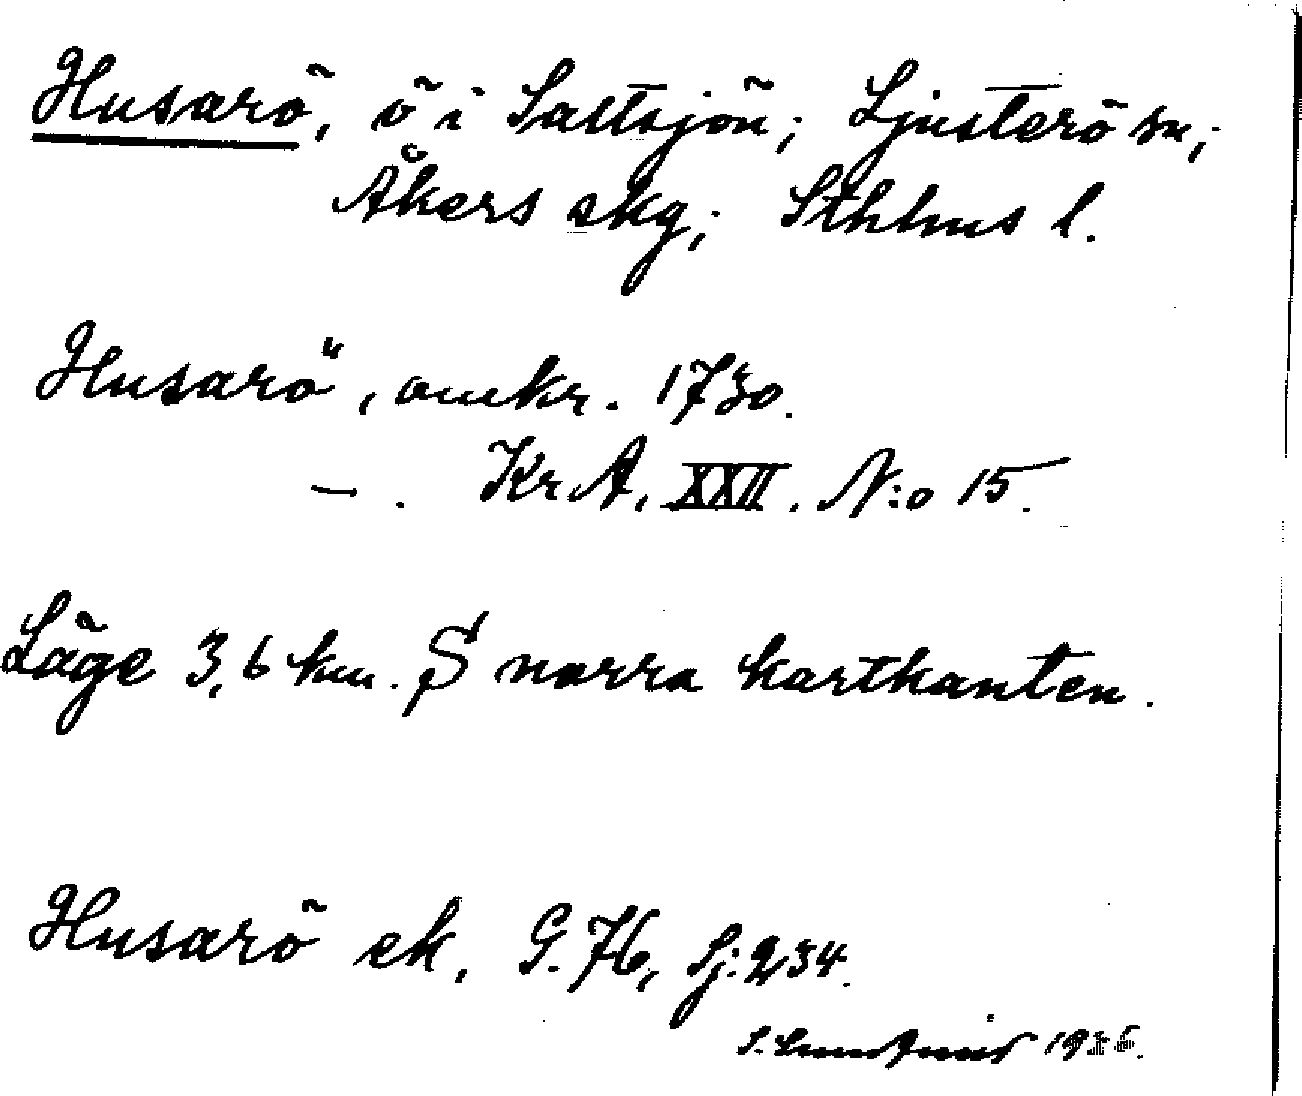 Husarö, ö i Saltsjön; Ljusterö sn;
Åkers skg; Sthlms l.
Husarö, omkr. 1730.
— . KrA, XXII. N:o 15.
Läge 3,6 km. S norra kartkanten.
Husarö ek. G. 76, Sj: 234.
S. 1936.